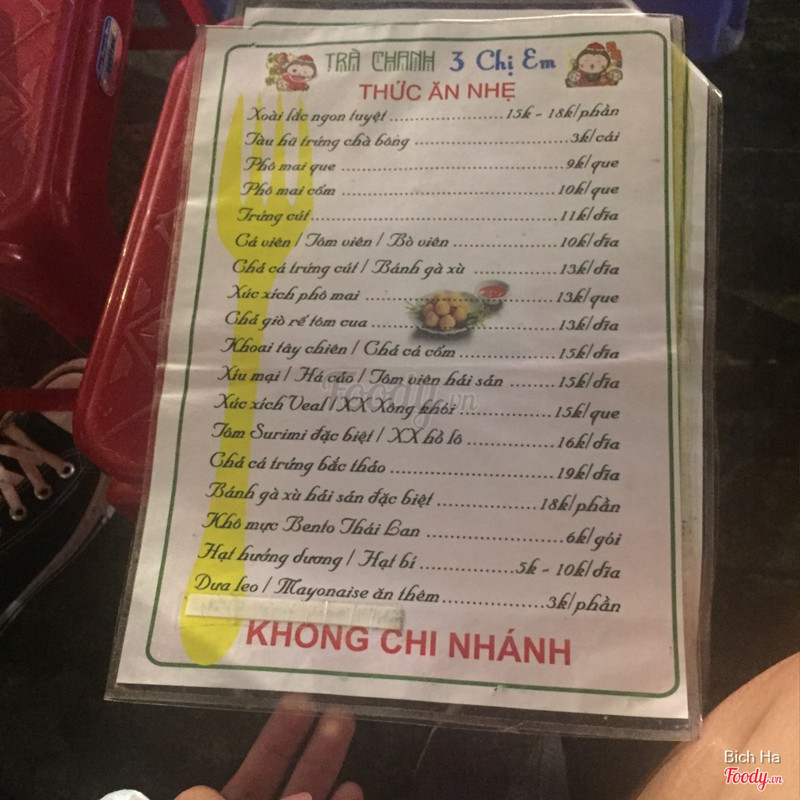 TRÀ CHANH 3 Chị Em
THỨC ĂN NHẸ
Xoài lắc ngon tuyệt ........................ 15k - 18k/phần
Tàu hũ trứng chà bông ........................ 3k/cái
Phô mai que ........................ 9k/que
Phô mai cốm ........................ 10k/que
Trứng cút ........................ 11k/dĩa
Cá viên / Tôm viên / Bò viên ........................ 10k/dĩa
Chả cá trứng cút / Bánh gà xù ........................ 13k/dĩa
Xúc xích phô mai ........................ 13k/que
Chả giò rế tôm cua ........................ 13k/dĩa
Khoai tây chiên / Chả cá cốm ........................ 15k/dĩa
Xíu mại / Há cảo / Tôm viên hải sản ........................ 15k/dĩa
Xúc xích Veal / XX Xông khói ........................ 15k/que
Tôm Surimi đặc biệt / XX hồ lô ........................ 16k/dĩa
Chả cá trứng bắc thảo ........................ 19k/dĩa
Bánh gà xù hải sản đặc biệt ........................ 18k/phần
Khô mực Bento Thái Lan ........................ 6k/gói
Hạt hướng dương / Hạt bí ........................ 5k - 10k/dĩa
Dưa leo / Mayonaise ăn thêm ........................ 3k/phần
KHÔNG CHI NHÁNH
Foody.vn
Bich Ha
Foody.vn